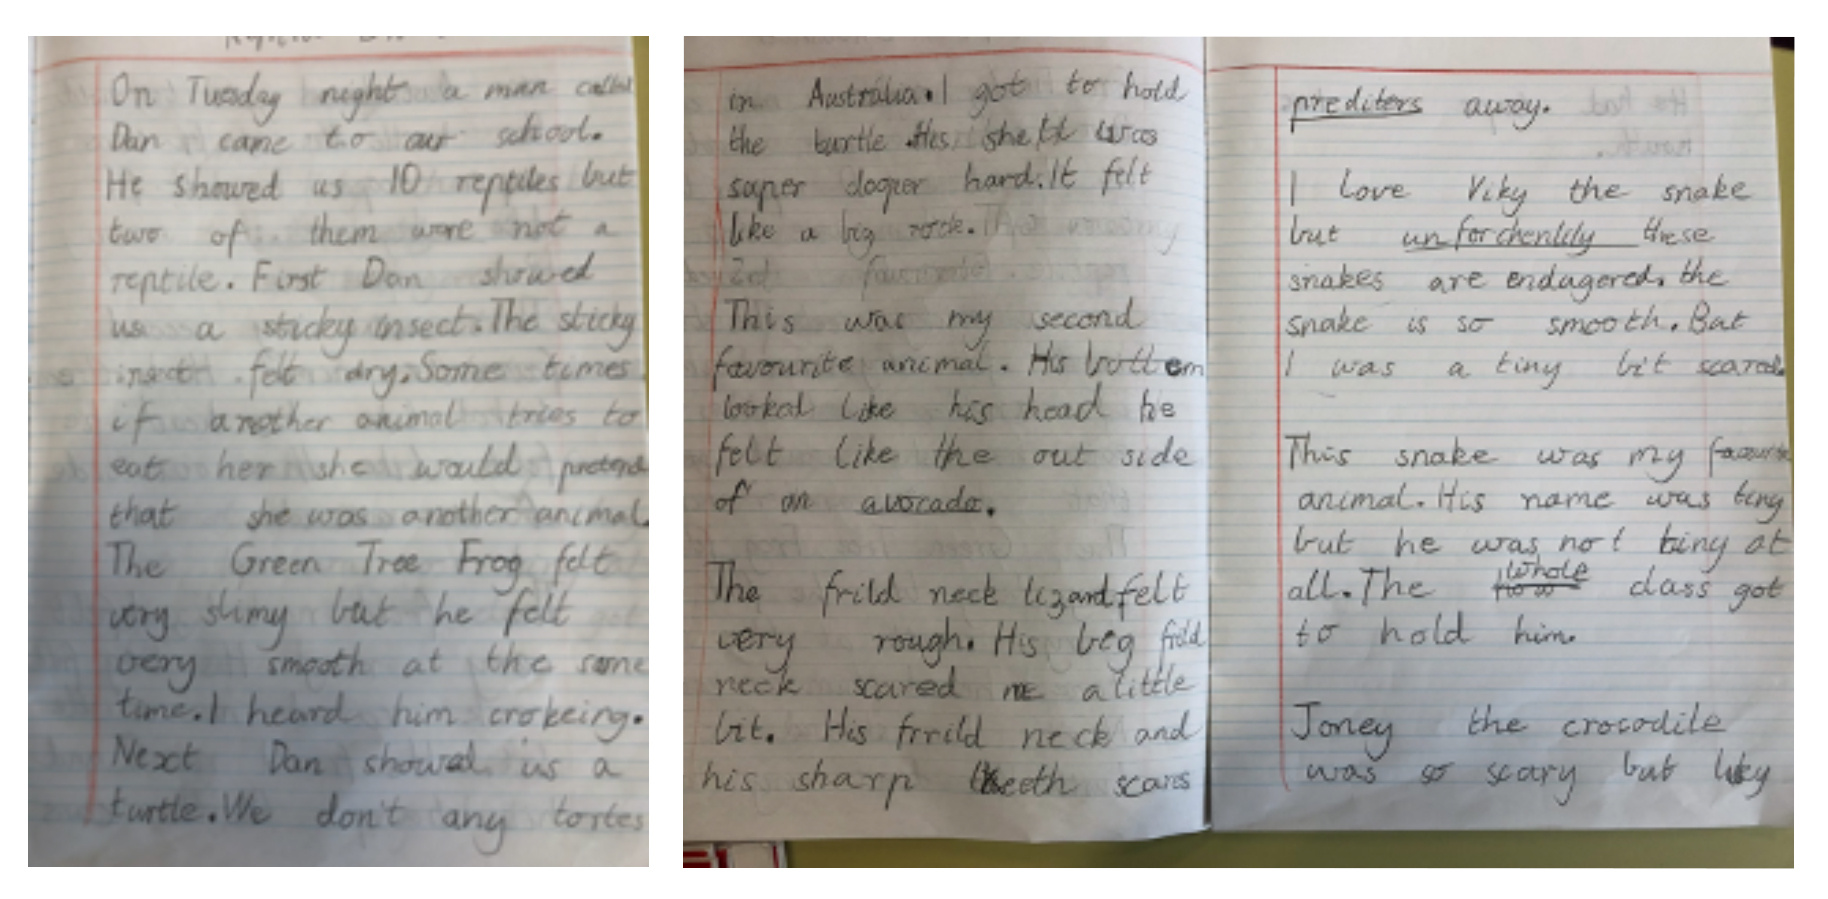 On Tuesday night a man called
Dan came to our school.
He showed us 10 reptiles but
two of them were not a
reptile. First Dan showed
us a sticky insect. The sticky
insect felt dry. Some times
if another animal tries to
eat her she would pretend
that she was another animal.
The Green Tree Frog felt
very slimy but he felt
very smooth at the same
time. I heard him crokeing.
Next Dan showed us a
turtle. We don't any tortes
in Australia. I got to hold
the turtle. His shell was
super doper hard. It felt
like a big rock.
This was my second
favourite animal. His bottem
looked like his head he
felt like the out side
of an avocado.
The frild neck lizard felt
very rough. His big frild
neck scared me a little
bit. His frrild neck and
his sharp teeth scares
prediters away.
I love Viky the snake
but unforchenldy these
snakes are endagered. the
snake is so smooth. But
I was a tiny bit scared.
This snake was my favourite
animal. His name was tiny
but he was not tiny at
all. The whole class got
to hold him.
Joney the crocodile
was so scary but luky